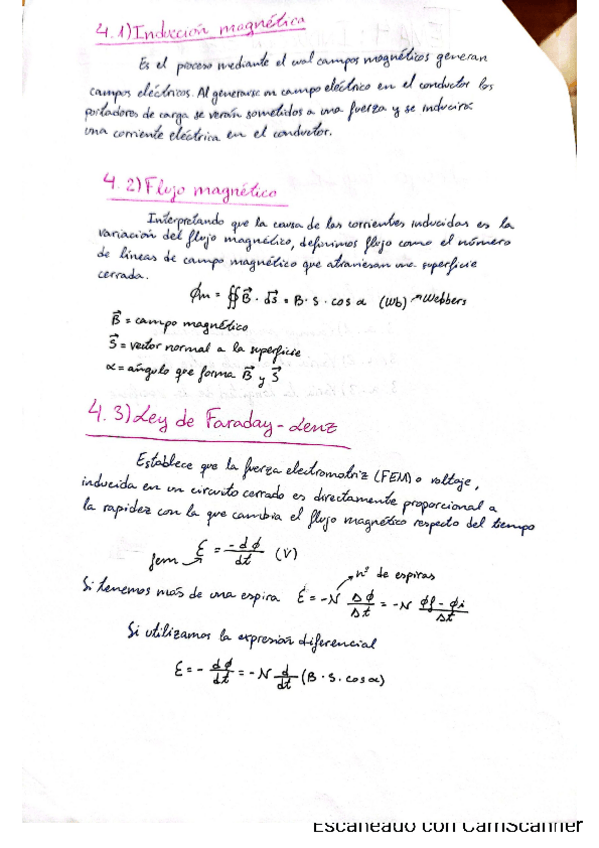 4.1) Inducción magnética
Es el proceso mediante el cual campos magnéticos generan
campos eléctricos. Al generarse un campo eléctrico en el conductor los
portadores de carga se verán sometidos a una fuerza y se inducirá
una corriente eléctrica en el conductor.
4.2) Flujo magnético
Interpretando que la causa de las corrientes inducidas es la
variación del flujo magnético, definimos flujo como el número
de líneas de campo magnético que atraviesan una superficie
cerrada.
ϕm = ∯ B⃗ · dS⃗ = B · S · cos α (Wb) → Webbers
B⃗ = campo magnético
S⃗ = vector normal a la superficie
α = ángulo que forma B⃗ y S⃗
4.3) Ley de Faraday - Lenz
Establece que la fuerza electromotriz (FEM) o voltaje,
inducida en un circuito cerrado es directamente proporcional a
la rapidez con la que cambia el flujo magnético respecto del tiempo
fem → Ɛ = -dϕ/dt (V)
nº de espiras
Si tenemos más de una espira Ɛ = -N Δϕ/Δt = -N ϕf - ϕi/Δt
Si utilizamos la expresión diferencial
Ɛ = - dϕ/dt = -N d/dt (B · S · cos α)
Escaneado con CamScanner